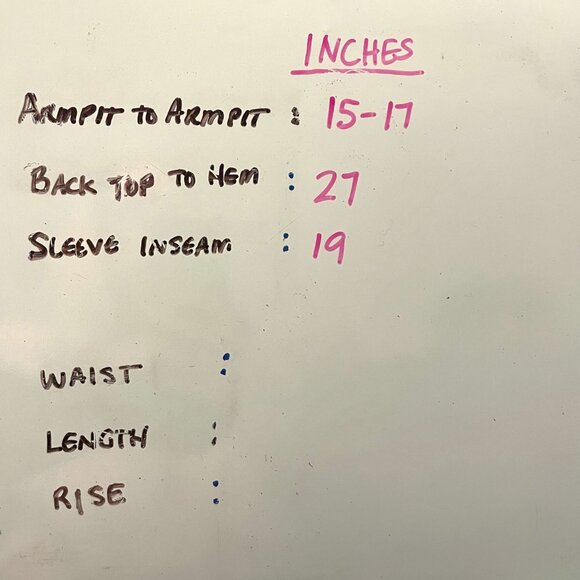 INCHES
ARMPIT TO ARMPIT : 15-17
BACK TOP TO HEM : 27
SLEEVE INSEAM : 19
WAIST :
LENGTH :
RISE :